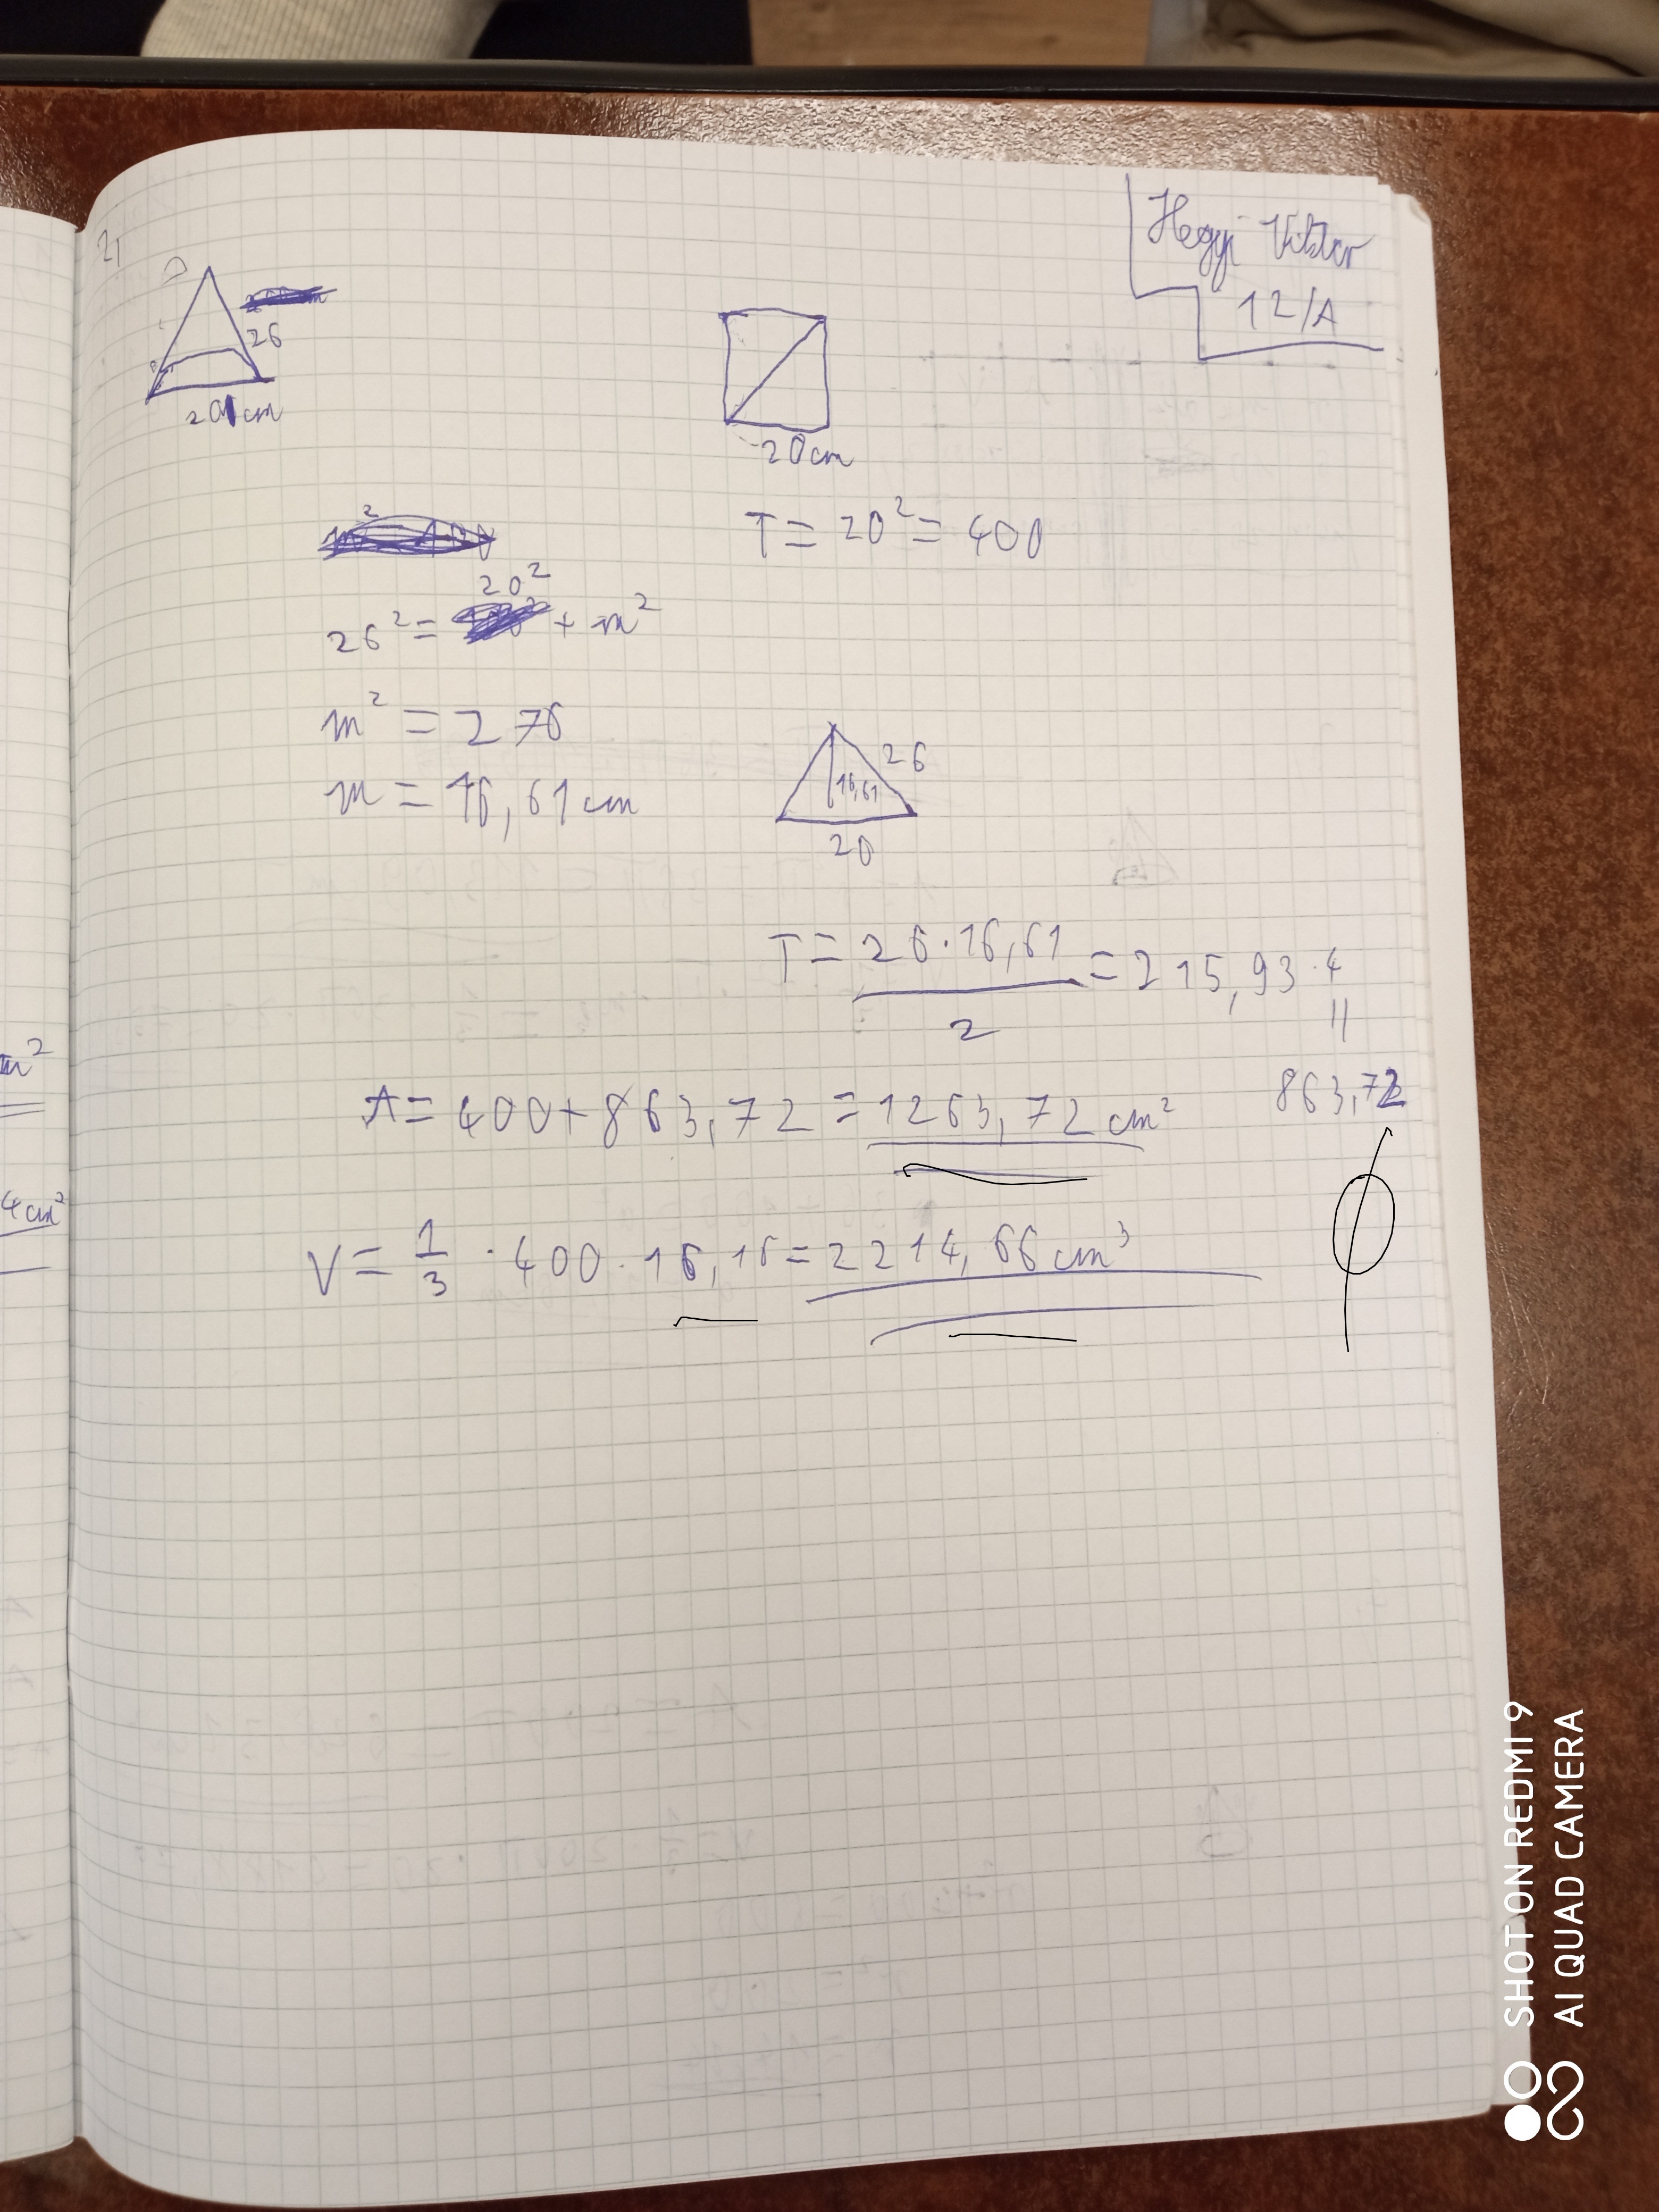 2,
Hegyi Viktor
12/A
26
20 cm
20cm
T = 20² = 400
20²
26² = + m²
m² = 276
m = 16,61 cm
26
16,61
20
T = 26·16,61 / 2 = 215,93·4
=
863,72
A = 400+863,72 = 1263,72 cm²
V = 1/3 · 400 · 16,16 = 2214,66 cm³
m²
4 cm²
SHOT ON REDMI 9
AI QUAD CAMERA